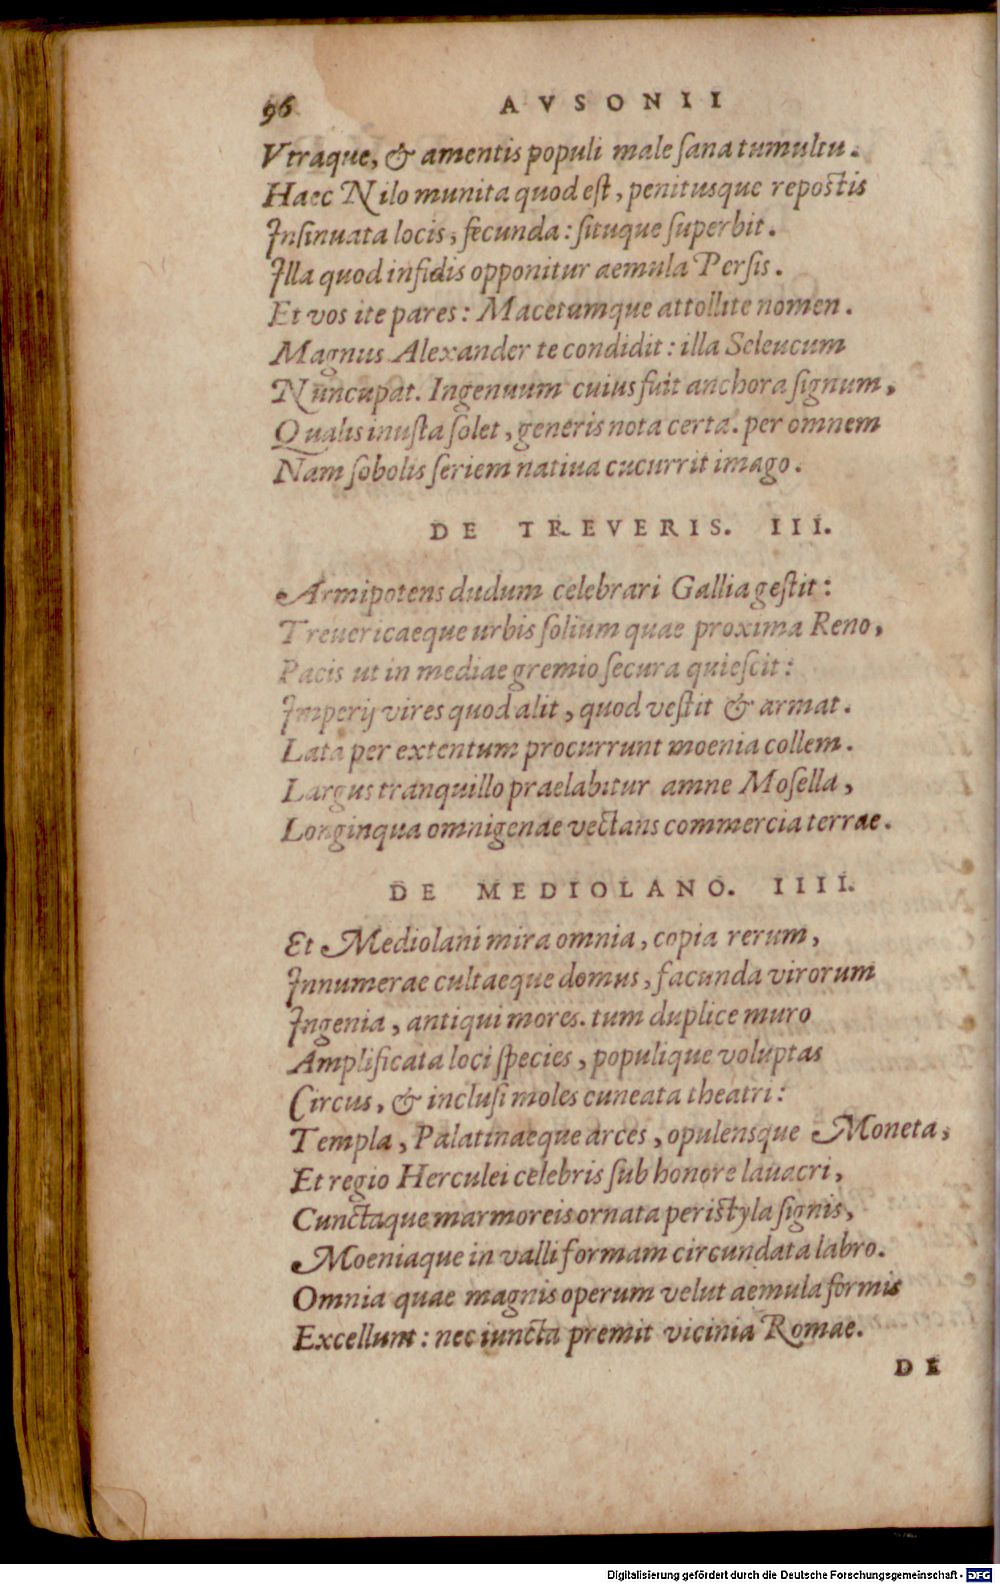 96 AVSONII
Vtraque, & amentis populi male sana tumultu.
Haec Nilo munita quod est, penitusque repostis
Insinuata locis, fecunda: situque superbit.
Illa quod infidis opponitur aemula Persis.
Et vos ite pares: Macetumque attollite nomen.
Magnus Alexander te condidit: illa Seleucum
Nuncupat. Ingenuum cuius fuit anchora signum,
Qualis inusta solet, generis nota certa. per omnem
Nam sobolis seriem natiua cucurrit imago.
DE TREVERIS. III.
Armipotens dudum celebrari Gallia gestit:
Treuericaeque urbis solium quae proxima Reno,
Pacis ut in mediae gremio secura quiescit:
Imperij vires quod alit, quod vestit & armat.
Lata per extentum procurrunt moenia collem.
Largus tranquillo praelabitur amne Mosella,
Longinqua omnigenae vectans commercia terrae.
DE MEDIOLANO. IIII.
Et Mediolani mira omnia, copia rerum,
Innumerae cultaeque domus, facunda virorum
Ingenia, antiqui mores. tum duplice muro
Amplificata loci species, populique voluptas
Circus, & inclusi moles cuneata theatri:
Templa, Palatinaeque arces, opulensque Moneta,
Et regio Herculei celebris sub honore lauacri,
Cunctaque marmoreis ornata peristyla signis,
Moeniaque in valli formam circundata labro.
Omnia quae magnis operum velut aemula formis
Excellunt: nec iuncta premit vicinia Romae.
DE
Digitalisierung gefördert durch die Deutsche Forschungsgemeinschaft - DFG